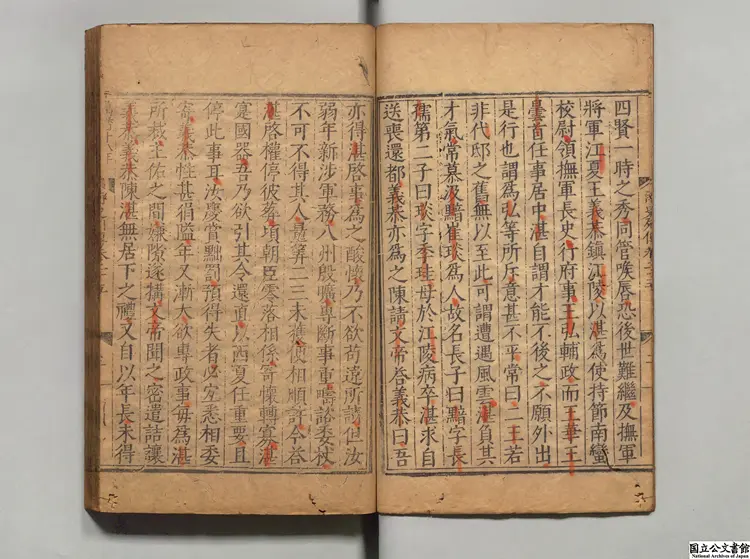 四賢一時之秀同管喉唇恐後世難繼及撫軍
將軍江夏王義恭鎮江陵以湛為使持節南蠻
校尉領撫軍長史行府事王弘輔政而王華王
曇首任事居中湛自謂才能不後之不願外出
是行也謂為弘等所斥意甚不平常曰二王若
非代邸之舊無以至此可謂遭遇風雲湛負其
才氣常慕汲黯崔琰為人故名長子曰黯字長
孺第二子曰琰字季珪母於江陵病卒湛求自
送喪還都義恭亦為之陳請文帝答義恭曰吾
亦得湛啓事為之酸懷乃不欲苟違所請但汝
弱年新涉軍務八州殷曠專斷事重疇諮委杖
不可不得其人量筭二三未獲便相順許今答
湛啓權停彼葬頃朝臣零落相係寄懷轉寡湛
寔國器吾乃欲引其令還直以西夏任重要且
停此事耳汝慶賞黜罰預得失者必宜悉相委
寄義恭性甚狷隘年又漸大欲專政事每為湛
所裁主佐之間嫌隙遂搆文帝聞之密遣詰讓
義恭義恭陳湛無居下之禮又自以年長未得
国立公文書館
National Archives of Japan